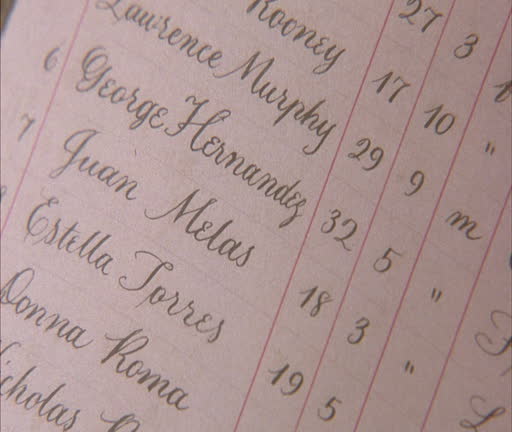 27 3
Rooney 17 10 "
Lawrence Murphy 29 9 m
6 George Hernandez 32 5 "
7 Juan Melas 18 3 "
Estella Torres 19 5
Donna Roma